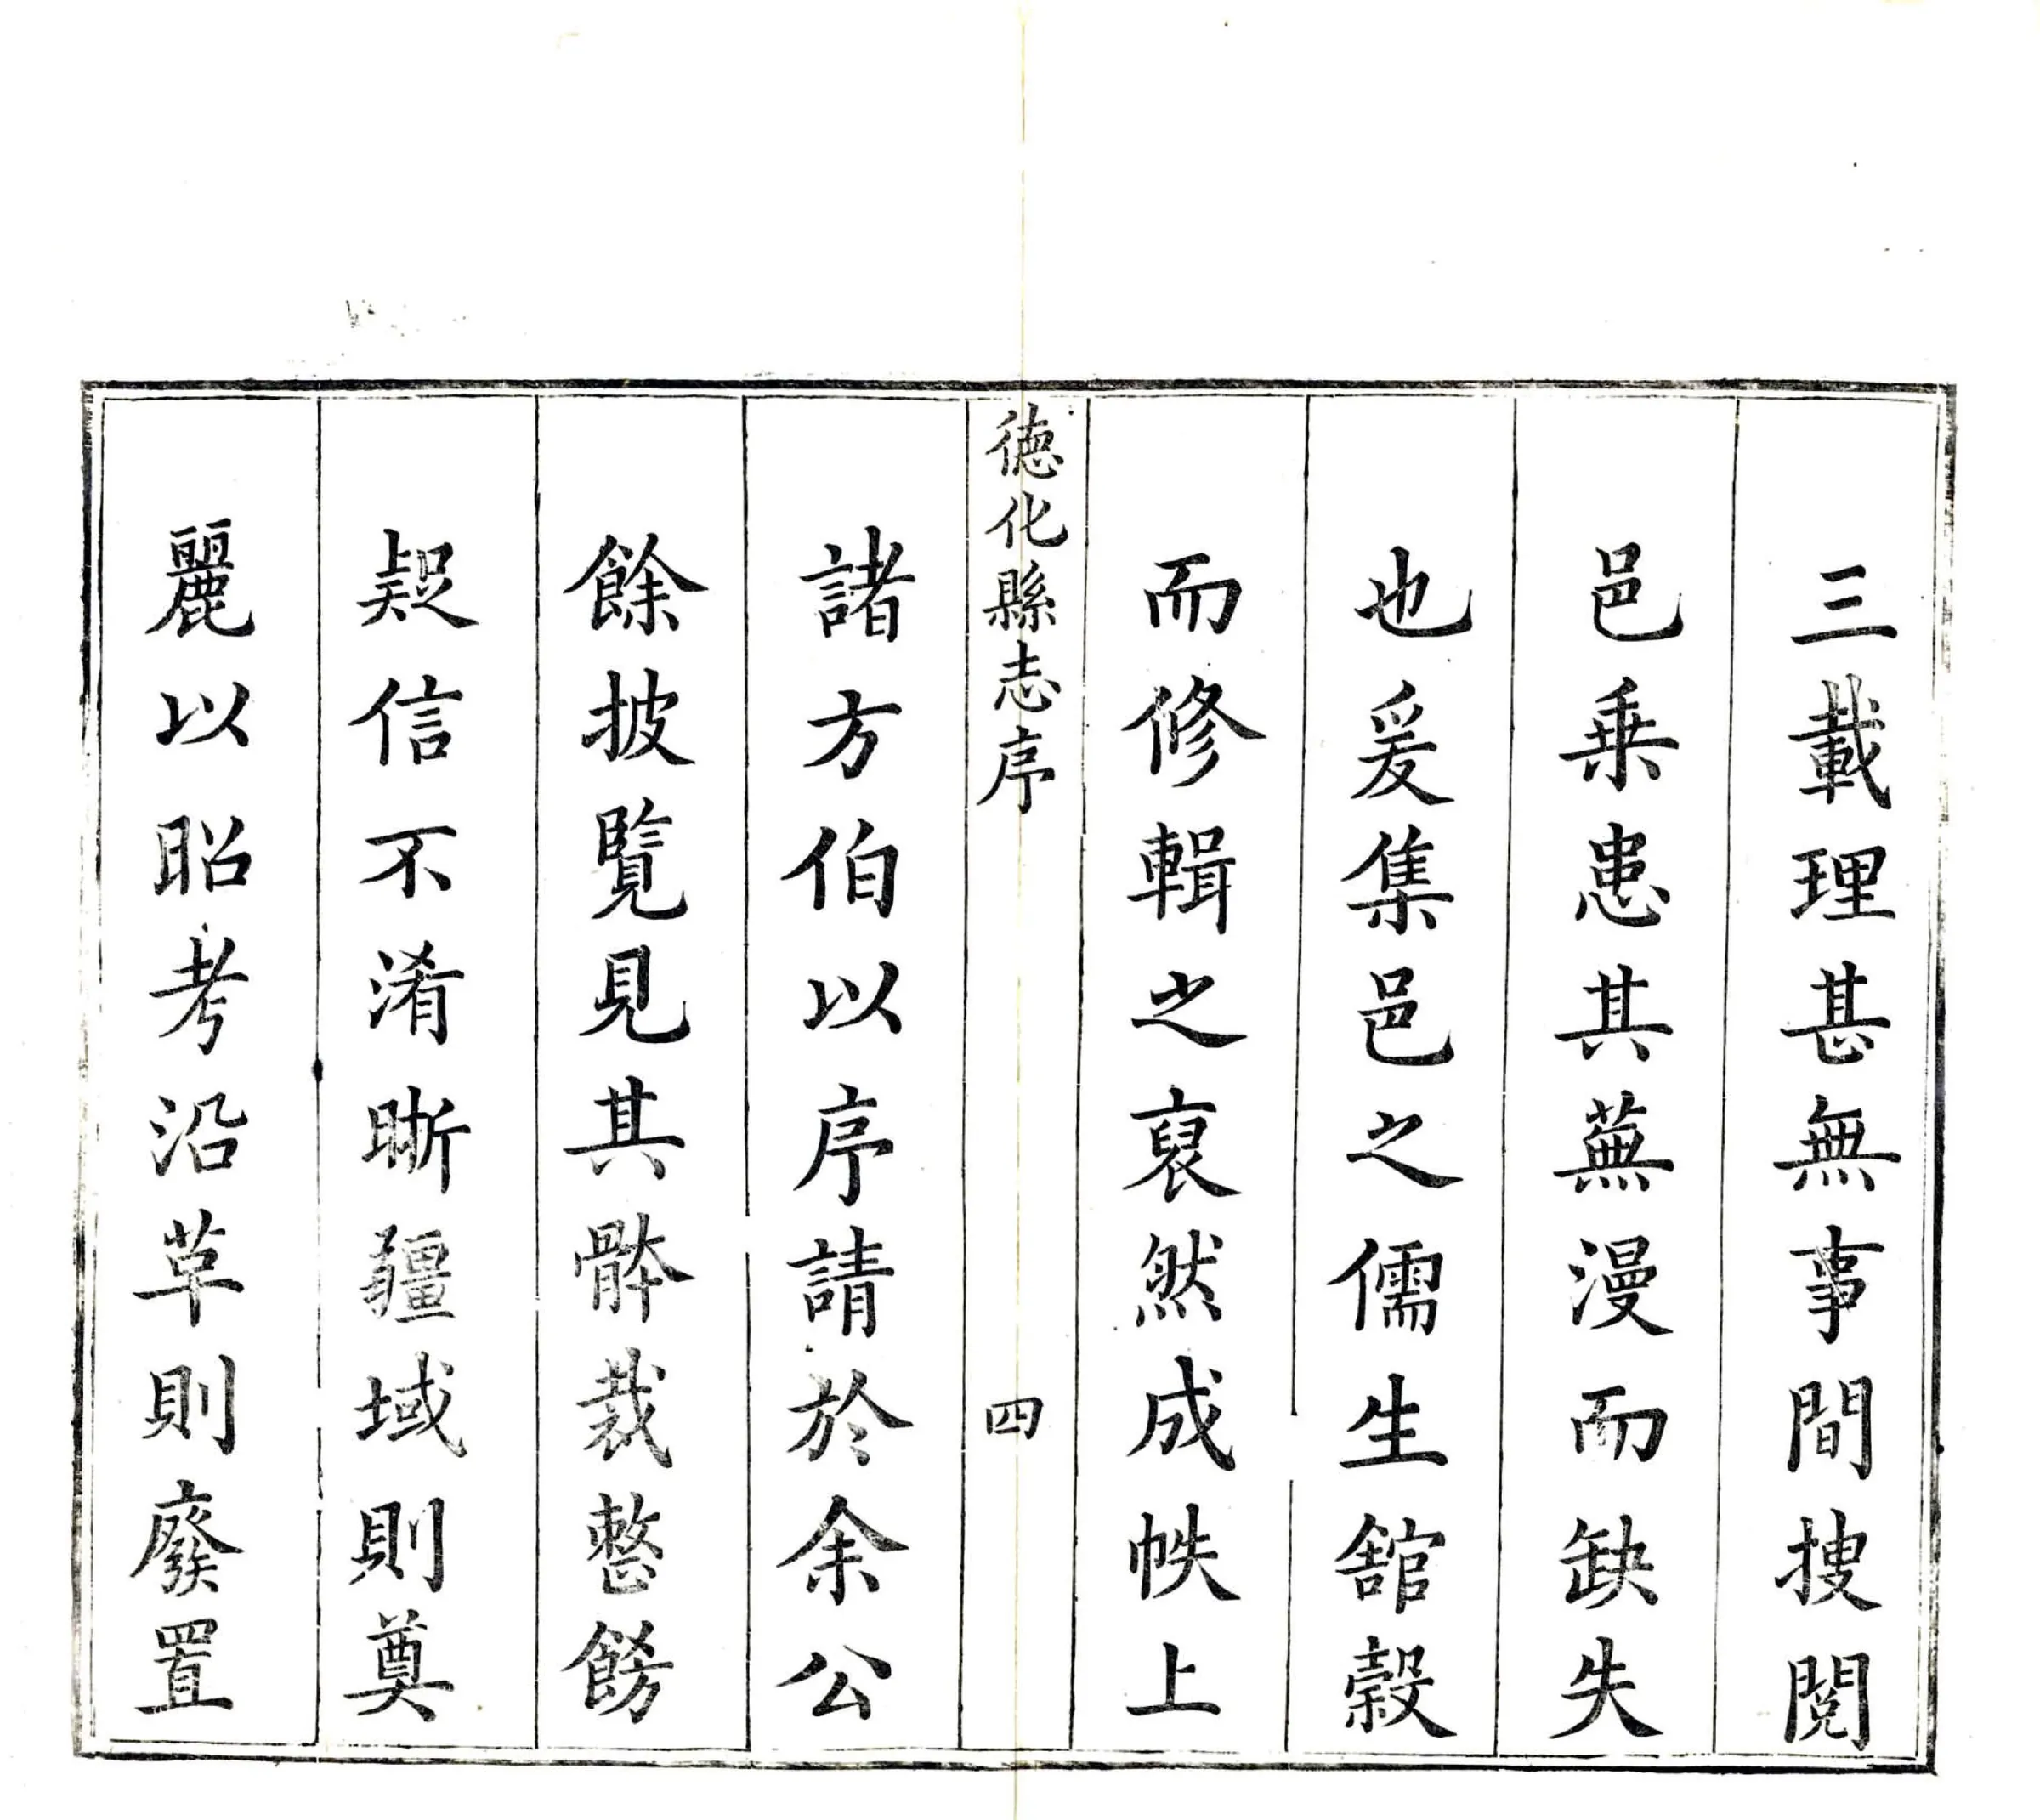 三載理甚無事間搜閱
邑乗患其蕪漫而缺失
也爰集邑之儒生舘穀
而修輯之裒然成帙上
德化縣志序
四
諸方伯以序請於余公
餘披覽見其骵裁整飭
疑信不淆晰疆域則奠
麗以昭考沿革則廢置